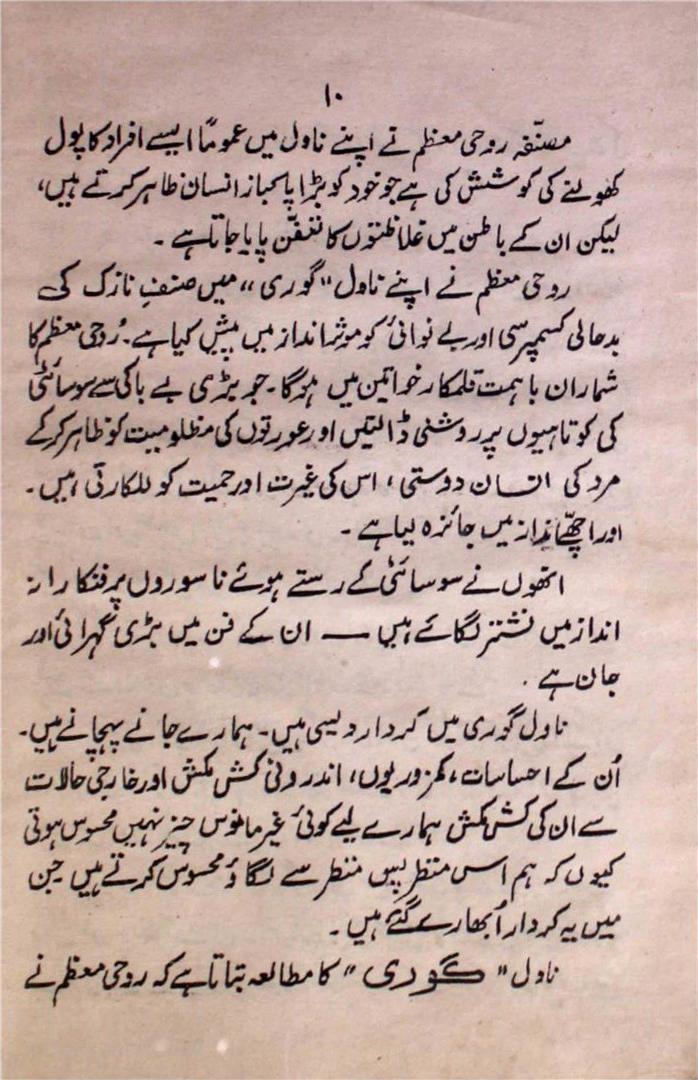 ۱۰
مصنّفہ روحی معظم نے اپنے ناول میں عموماً ایسے افراد کا پول
کھولنے کی کوشش کی ہے جو خود کو بڑا پاکباز انسان ظاہر کرتے ہیں،
لیکن ان کے باطن میں غلاظتوں کا تعفّن پایا جاتا ہے ۔
روحی معظم نے اپنے ناول "گوری" میں صنفِ نازک کی
بدحالی کسمپرسی اور بے نوائی کو موثر انداز میں پیش کیا ہے۔ رُوحی معظم کا
شمار ان با ہمت قلمکار خواتین میں ہوگا۔ جو بڑی بے باکی سے سوسائٹی
کی کوتاہیوں پر روشنی ڈالتیں اور عورتوں کی مظلومیت کو ظاہر کرکے
مرد کی انسان دوستی، اس کی غیرت اور حمیت کو للکارتی ہیں۔
اور اچھّے انداز میں جائزہ لیا ہے ۔
انھوں نے سوسائٹی کے رستے ہوئے ناسوروں پر فنکارانہ
انداز میں نشتر لگائے ہیں — ان کے فن میں بڑی گہرائی اور
جان ہے ۔
ناول گوری میں کردار دیسی ہیں۔ ہمارے جانے پہچانے ہیں۔
اُن کے احساسات، کمزوریوں، اندرونی کش مکش اور خارجی حالات
سے ان کی کش مکش ہمارے لیے کوئی غیر مانوس چیز نہیں محسوس ہوتی
کیوں کہ ہم اس منظر پس منظر سے لگاؤ محسوس کرتے ہیں جن
میں یہ کردار اُبھارے گئے ہیں ۔
ناول "گوری" کا مطالعہ بتاتا ہے کہ روحی معظم نے